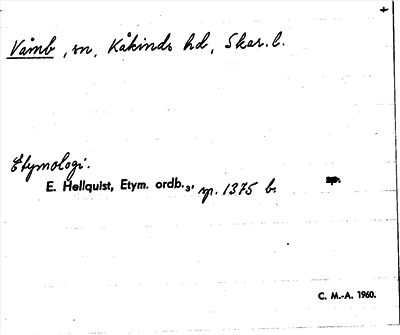 Våmb, sn, Kåkinds hd, Skar. l.
Etymologi.
E. Hellquist, Etym. ordb.₃, p. 1375 b.
C. M.-A. 1960.